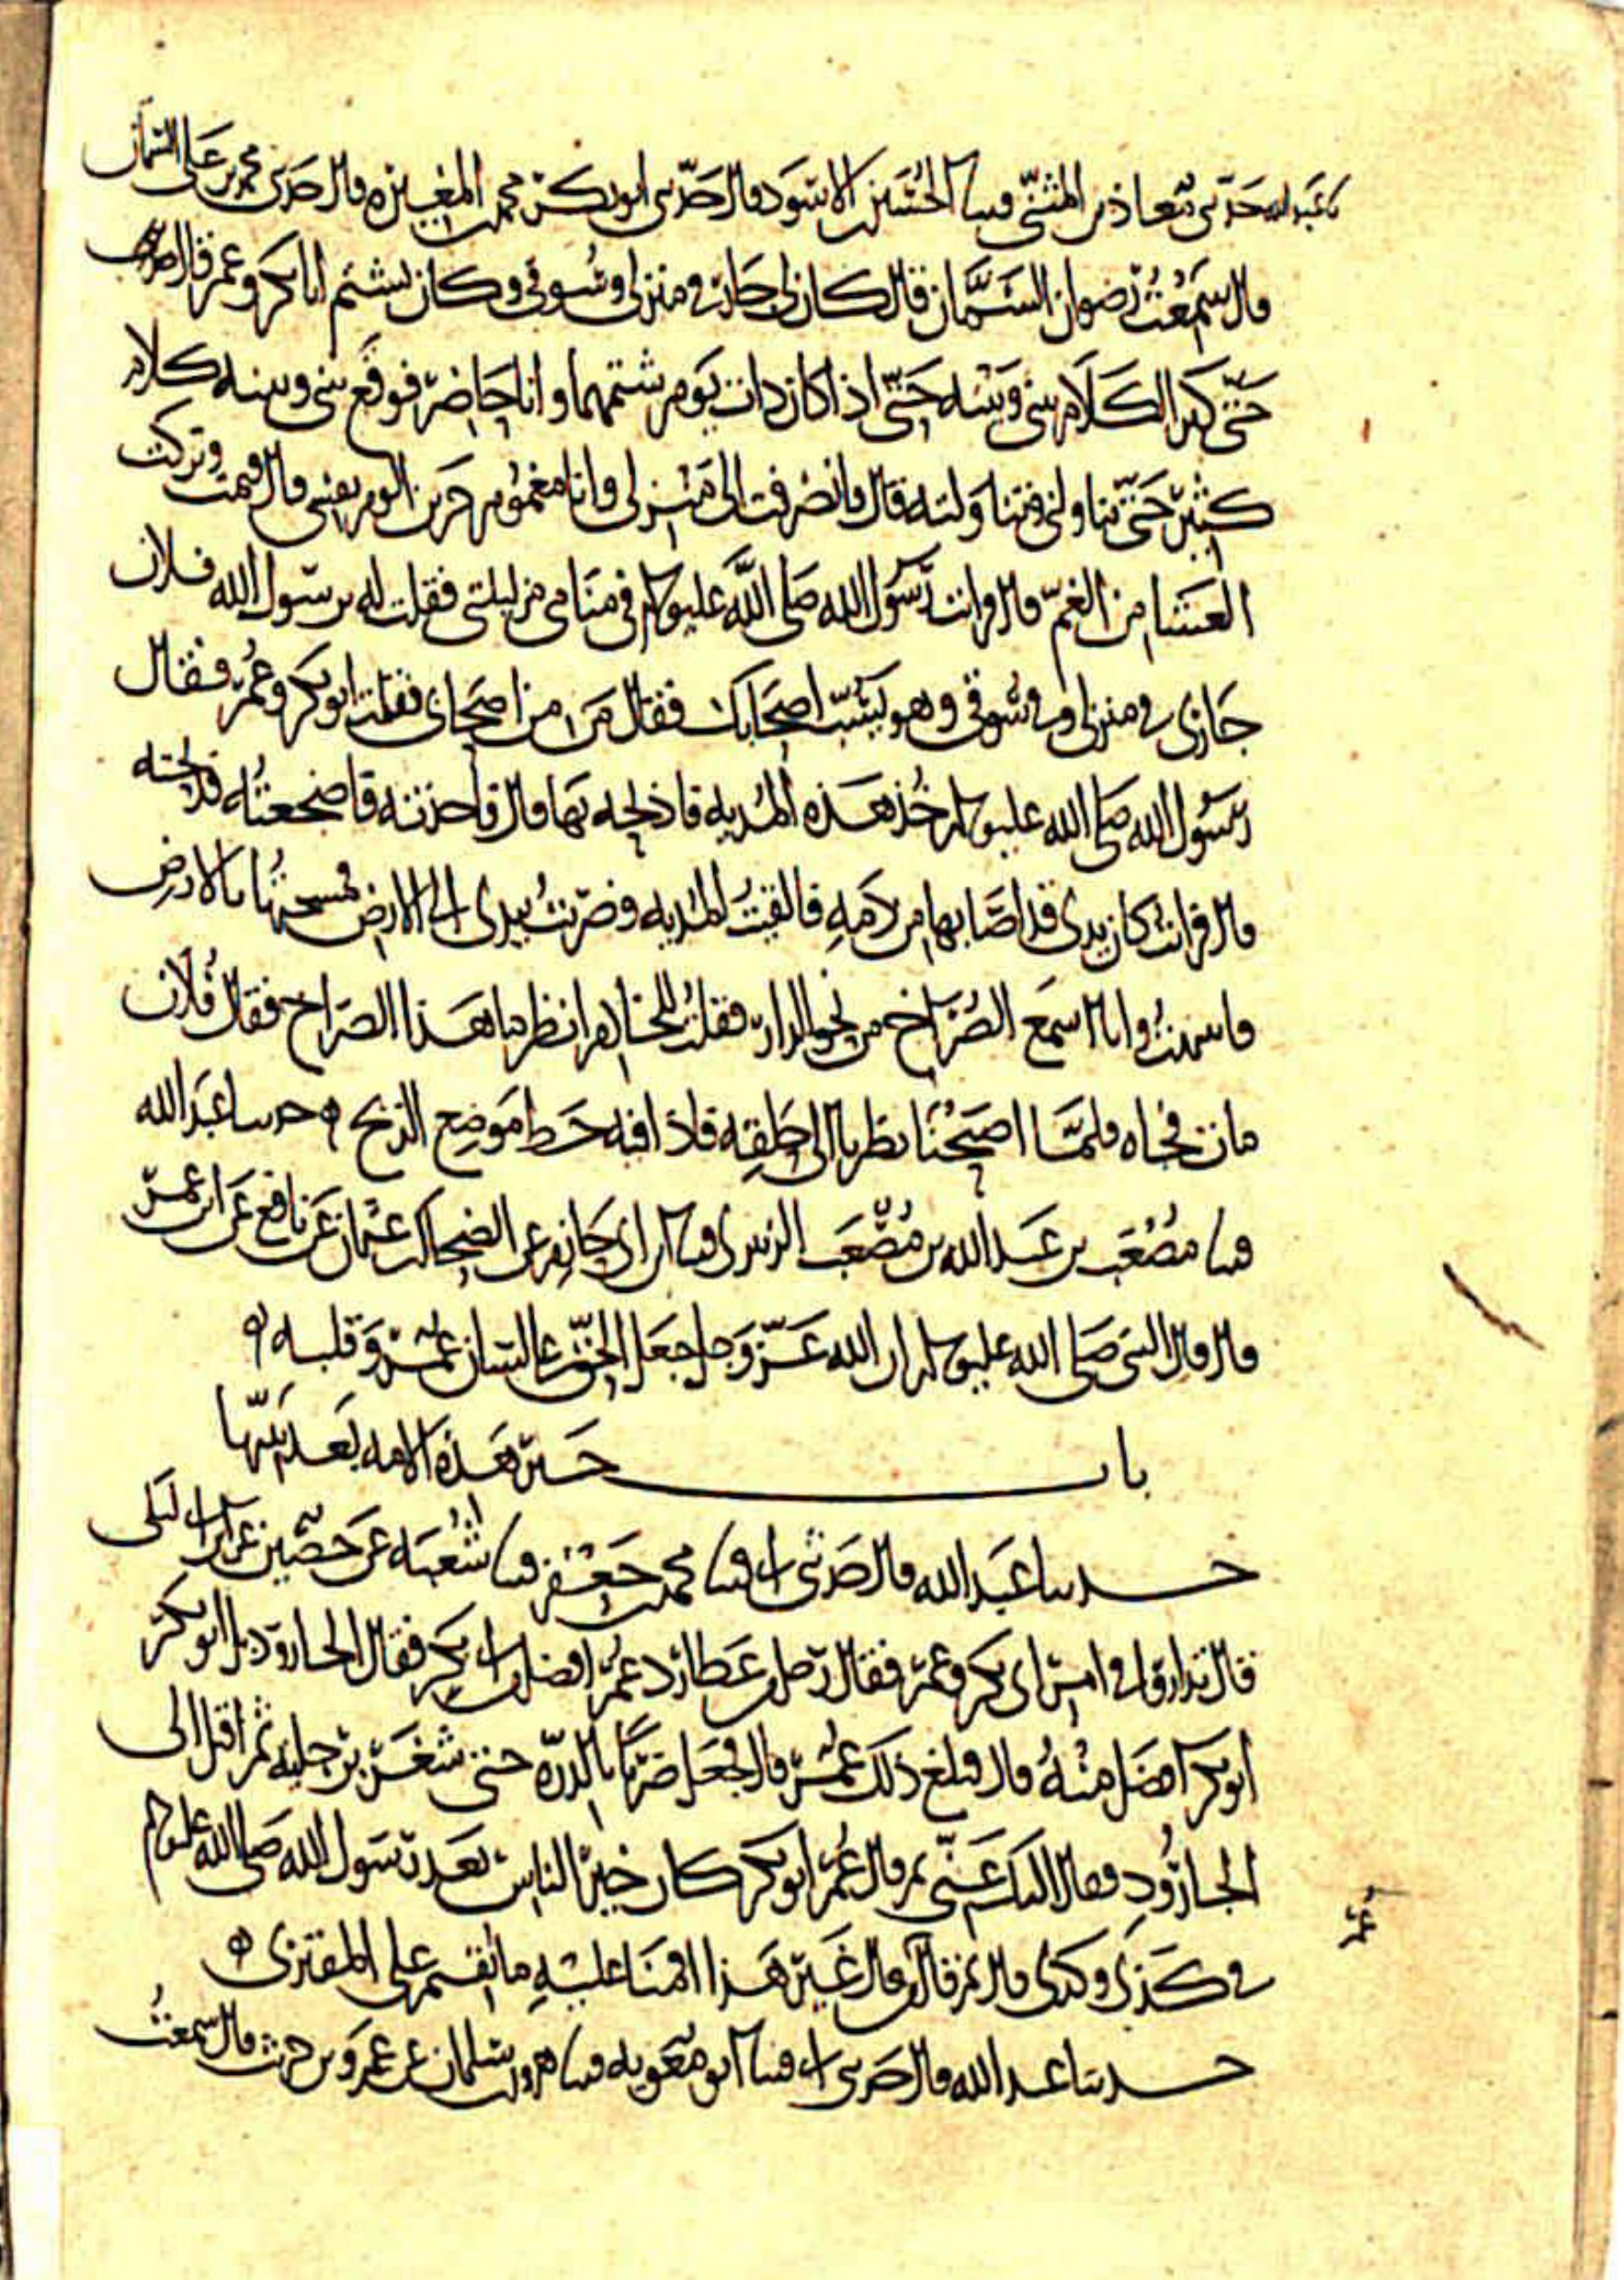 نا عبد الله حدثني معاذ بن المثنى قثنا الحسين بن الاسود قال حدثني ابو بكر بن محمد بن المغيرة قال حدثني محمد بن علي السمان
قال سمعت رضوان السمان قال كان لي جار في منزلي وسوقي وكان يشتم ابا بكر وعمر قال
حتى كثر الكلام بيني وبينه حتى اذا كان ذات يوم شتمهما وانا حاضر فوقع بيني وبينه كلام
كثير حتى تناولني وتناولته قال فانصرفت الى منزلي وانا مغموم حزين الوم نفسي قال فنمت وتركت
العشا من الغم قال فرايت رسول الله صلى الله عليه وسلم في منامي من ليلتي فقلت له يرسول الله فلان
جاري في منزلي وفي سوقي وهو يسب اصحابك فقال من من اصحابي فقلت ابو بكر وعمر فقال
رسول الله صلى الله عليه وسلم خذ هذه المدية فاذبحه بها قال فاخذته فاضجعته فذبحته
قال فرايت كان يدي قد اصابها من دمه فالقيت المدية وضربت بيدي الى الارض فمسحتها بالارض
فانتبهت وانا اسمع الصراخ من نحو الدار فقلت للخادم انظر ما هذا الصراخ فقال فلان
مات فجاه فلما اصبحنا نظرنا الى حلقه فاذا فيه خط موضع الذبح ه حدثنا عبد الله
قثنا مصعب بن عبد الله بن مصعب الزبيري قثنا ابن ابي حازم عن الضحاك بن عثمان عن نافع عن ابن عمر
قال قال النبي صلى الله عليه وسلم ان الله عز وجل جعل الحق على لسان عمر وقلبه ه
باب خير هذه الامه بعد نبيها
حدثنا عبد الله قال حدثني ابي قثنا محمد بن جعفر قثنا شعبه عن حصين عن ابن ابي ليلى
قال تداروا في امر ابي بكر وعمر فقال رجل من عطارد عمر افضل من ابي بكر فقال الجارود بل ابو بكر
ابو بكر افضل منه قال فبلغ ذلك عمر قال فجعل ضربا بالدره حتى شغر برجليه ثم اقبل الى
الجارود فقال اليك عني ثم قال عمر ابو بكر كان خير الناس بعد رسول الله صلى الله عليه وسلم
في كذى وكذى قال ثم قال من قال غير هذا اقمنا عليه ما نقيم على المفتري ه
حدثنا عبد الله قال حدثني ابي قثنا ابو معويه قثنا هرون بن سلمان عن عمرو بن حريث قال سمعت